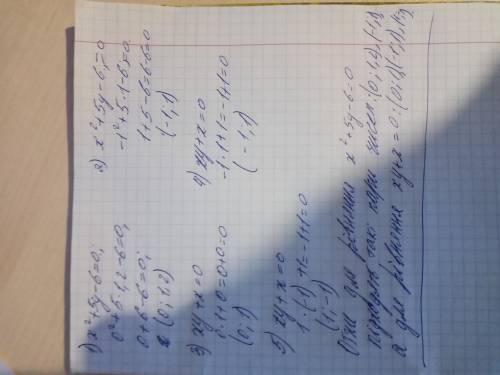 1) x²+5y-6=0;
0²+5·1,2-6=0,
0+6-6=0;
(0; 1,2)
2) x²+5y-6=0
-1²+5·1-6=0.
1+5-6=6-6=0
(-1; 1)
3) xy+x=0
0·1+0=0+0=0
(0; 1)
4) xy+x=0
-1·1+1=-1+1=0
(-1; 1)
5) xy+x=0
1·(-1)+1=-1+1=0
(1; -1)
Отже для рівняння x²+5y-6=0
підходять такі пари чисел: (0; 1,2), (-1; 1)
а для рівняння xy+x=0: (0; 1) (-1; 1), (1;